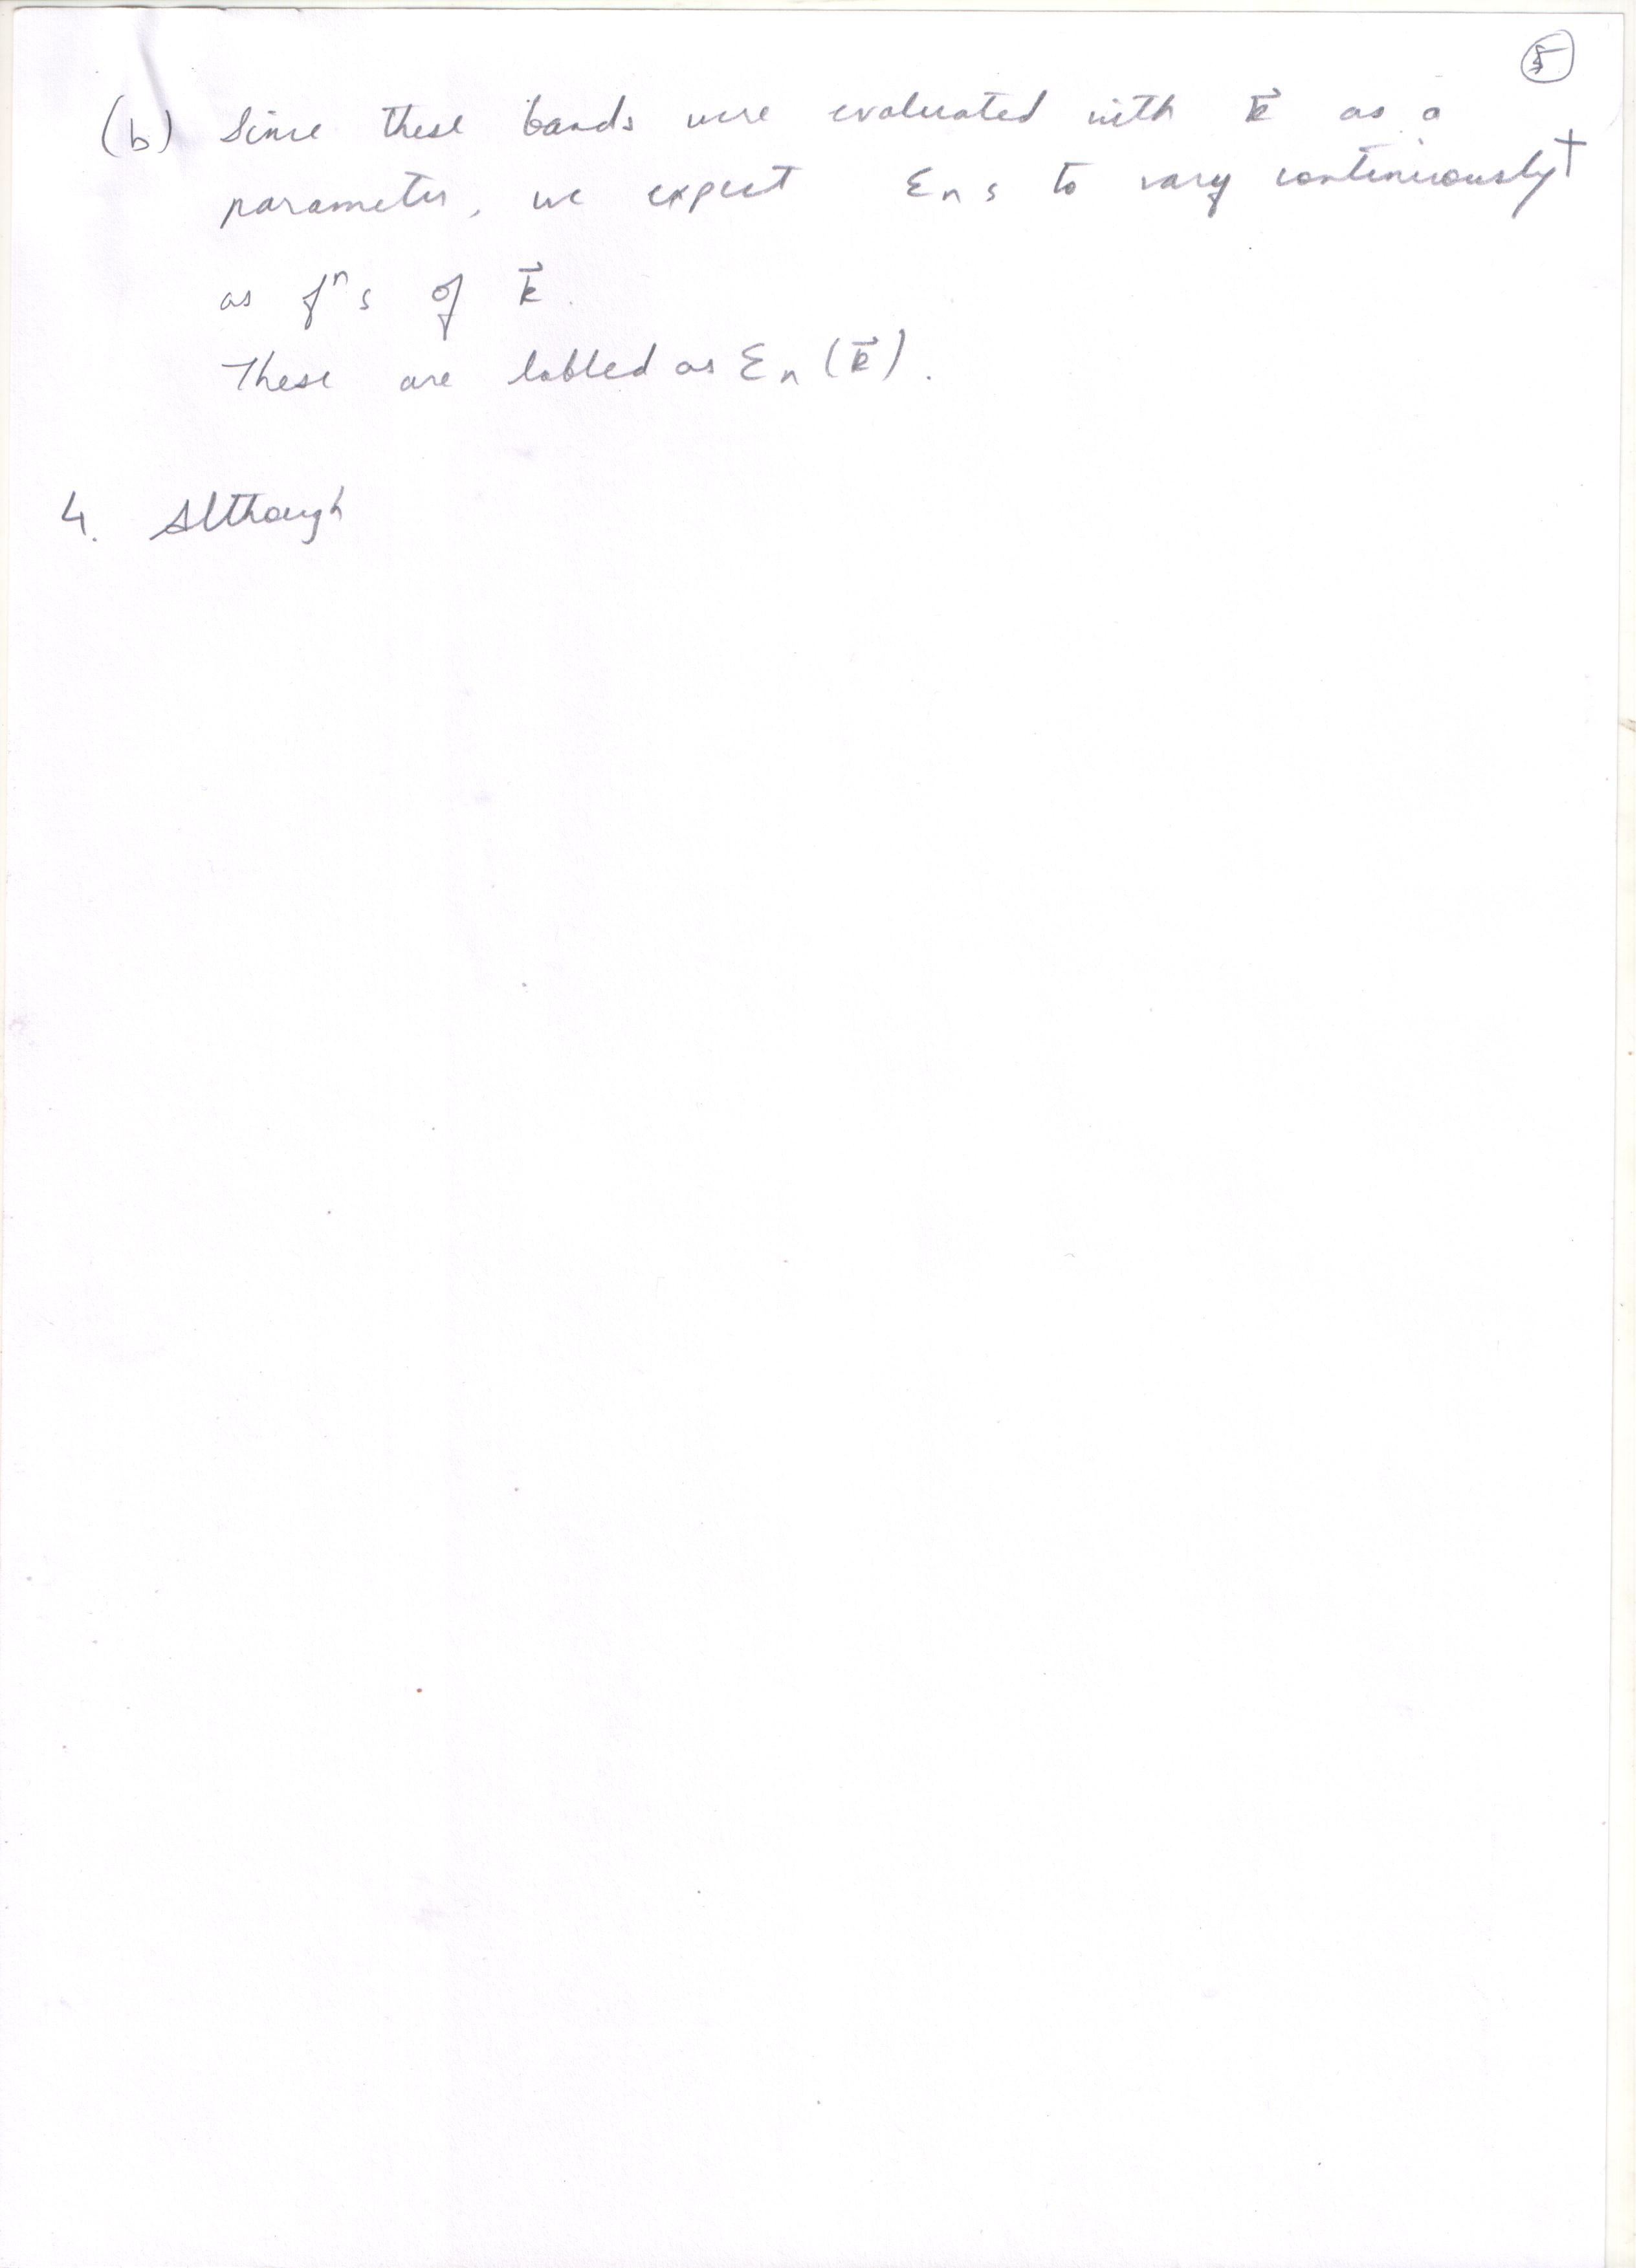 5
(b) Since these bands were evaluated with k⃗ as a
parameter, we expect Ɛn s to vary continuously†
as fⁿs of k⃗.
These are labled as Ɛn (k⃗).
4. Although